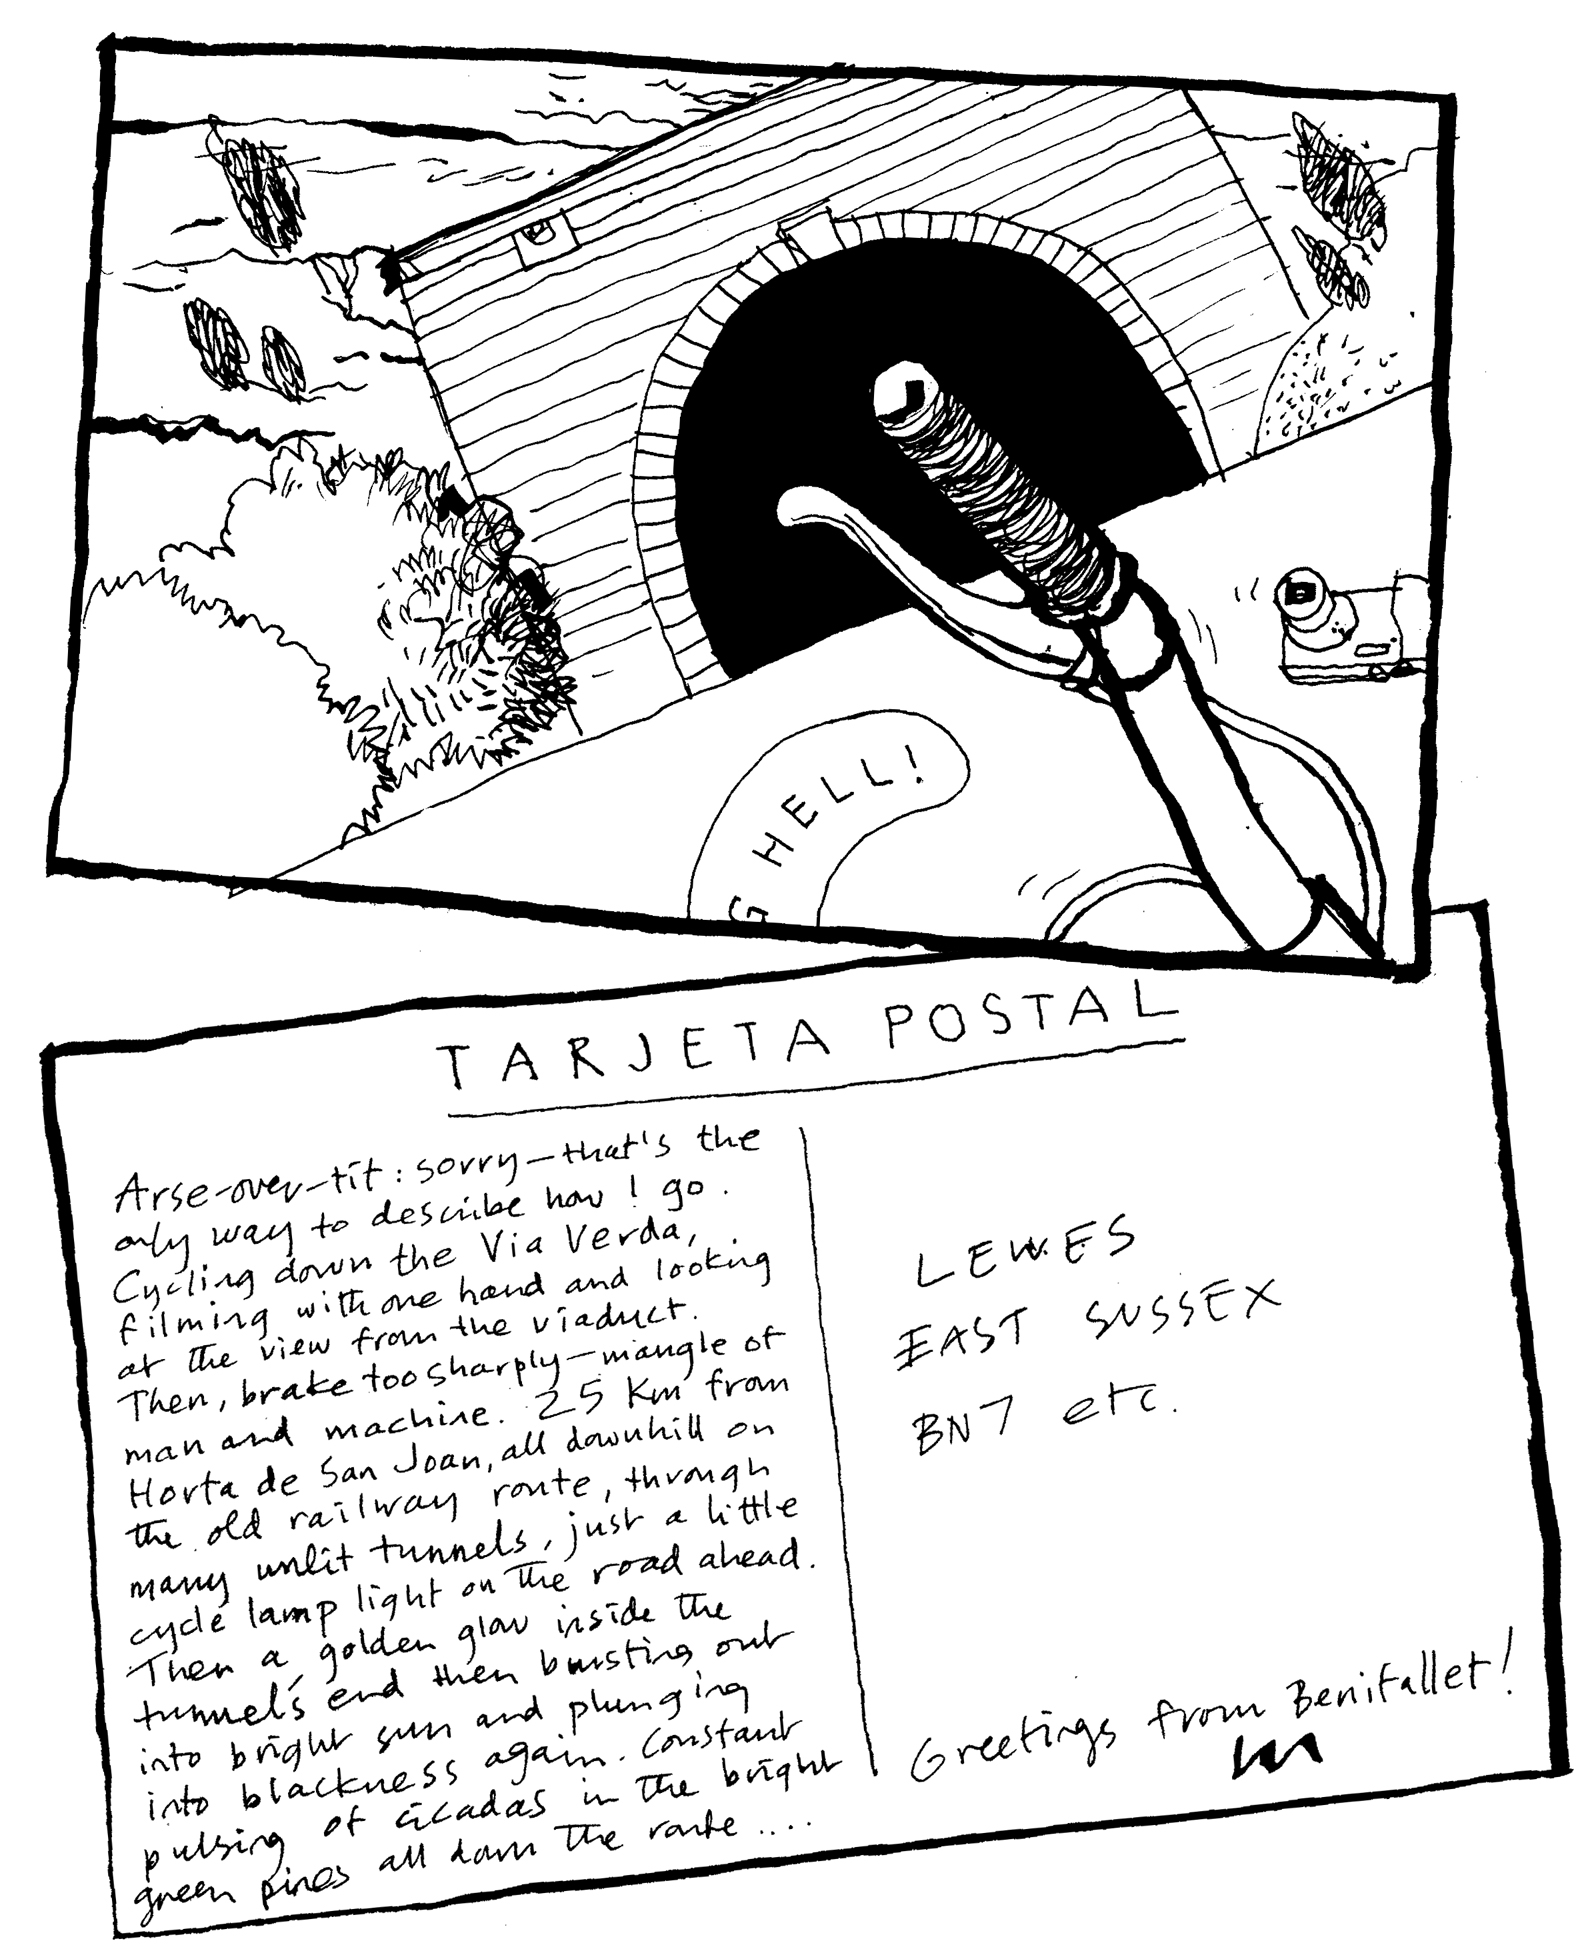 G HELL!
TARJETA POSTAL
Arse-over-tit: sorry—that's the
only way to describe how I go.
Cycling down the Via Verda,
filming with one hand and looking
at the view from the viaduct.
Then, brake too sharply—mangle of
man and machine. 25 Km from
Horta de San Joan, all downhill on
the old railway route, through
many unlit tunnels, just a little
cycle lamp light on the road ahead.
Then a golden glow inside the
tunnel's end then bursting out
into bright sun and plunging
into blackness again. Constant
pulsing of cicadas in the bright
green pines all down the route ....
LEWES
EAST SUSSEX
BN7 etc.
Greetings from Benifallet!